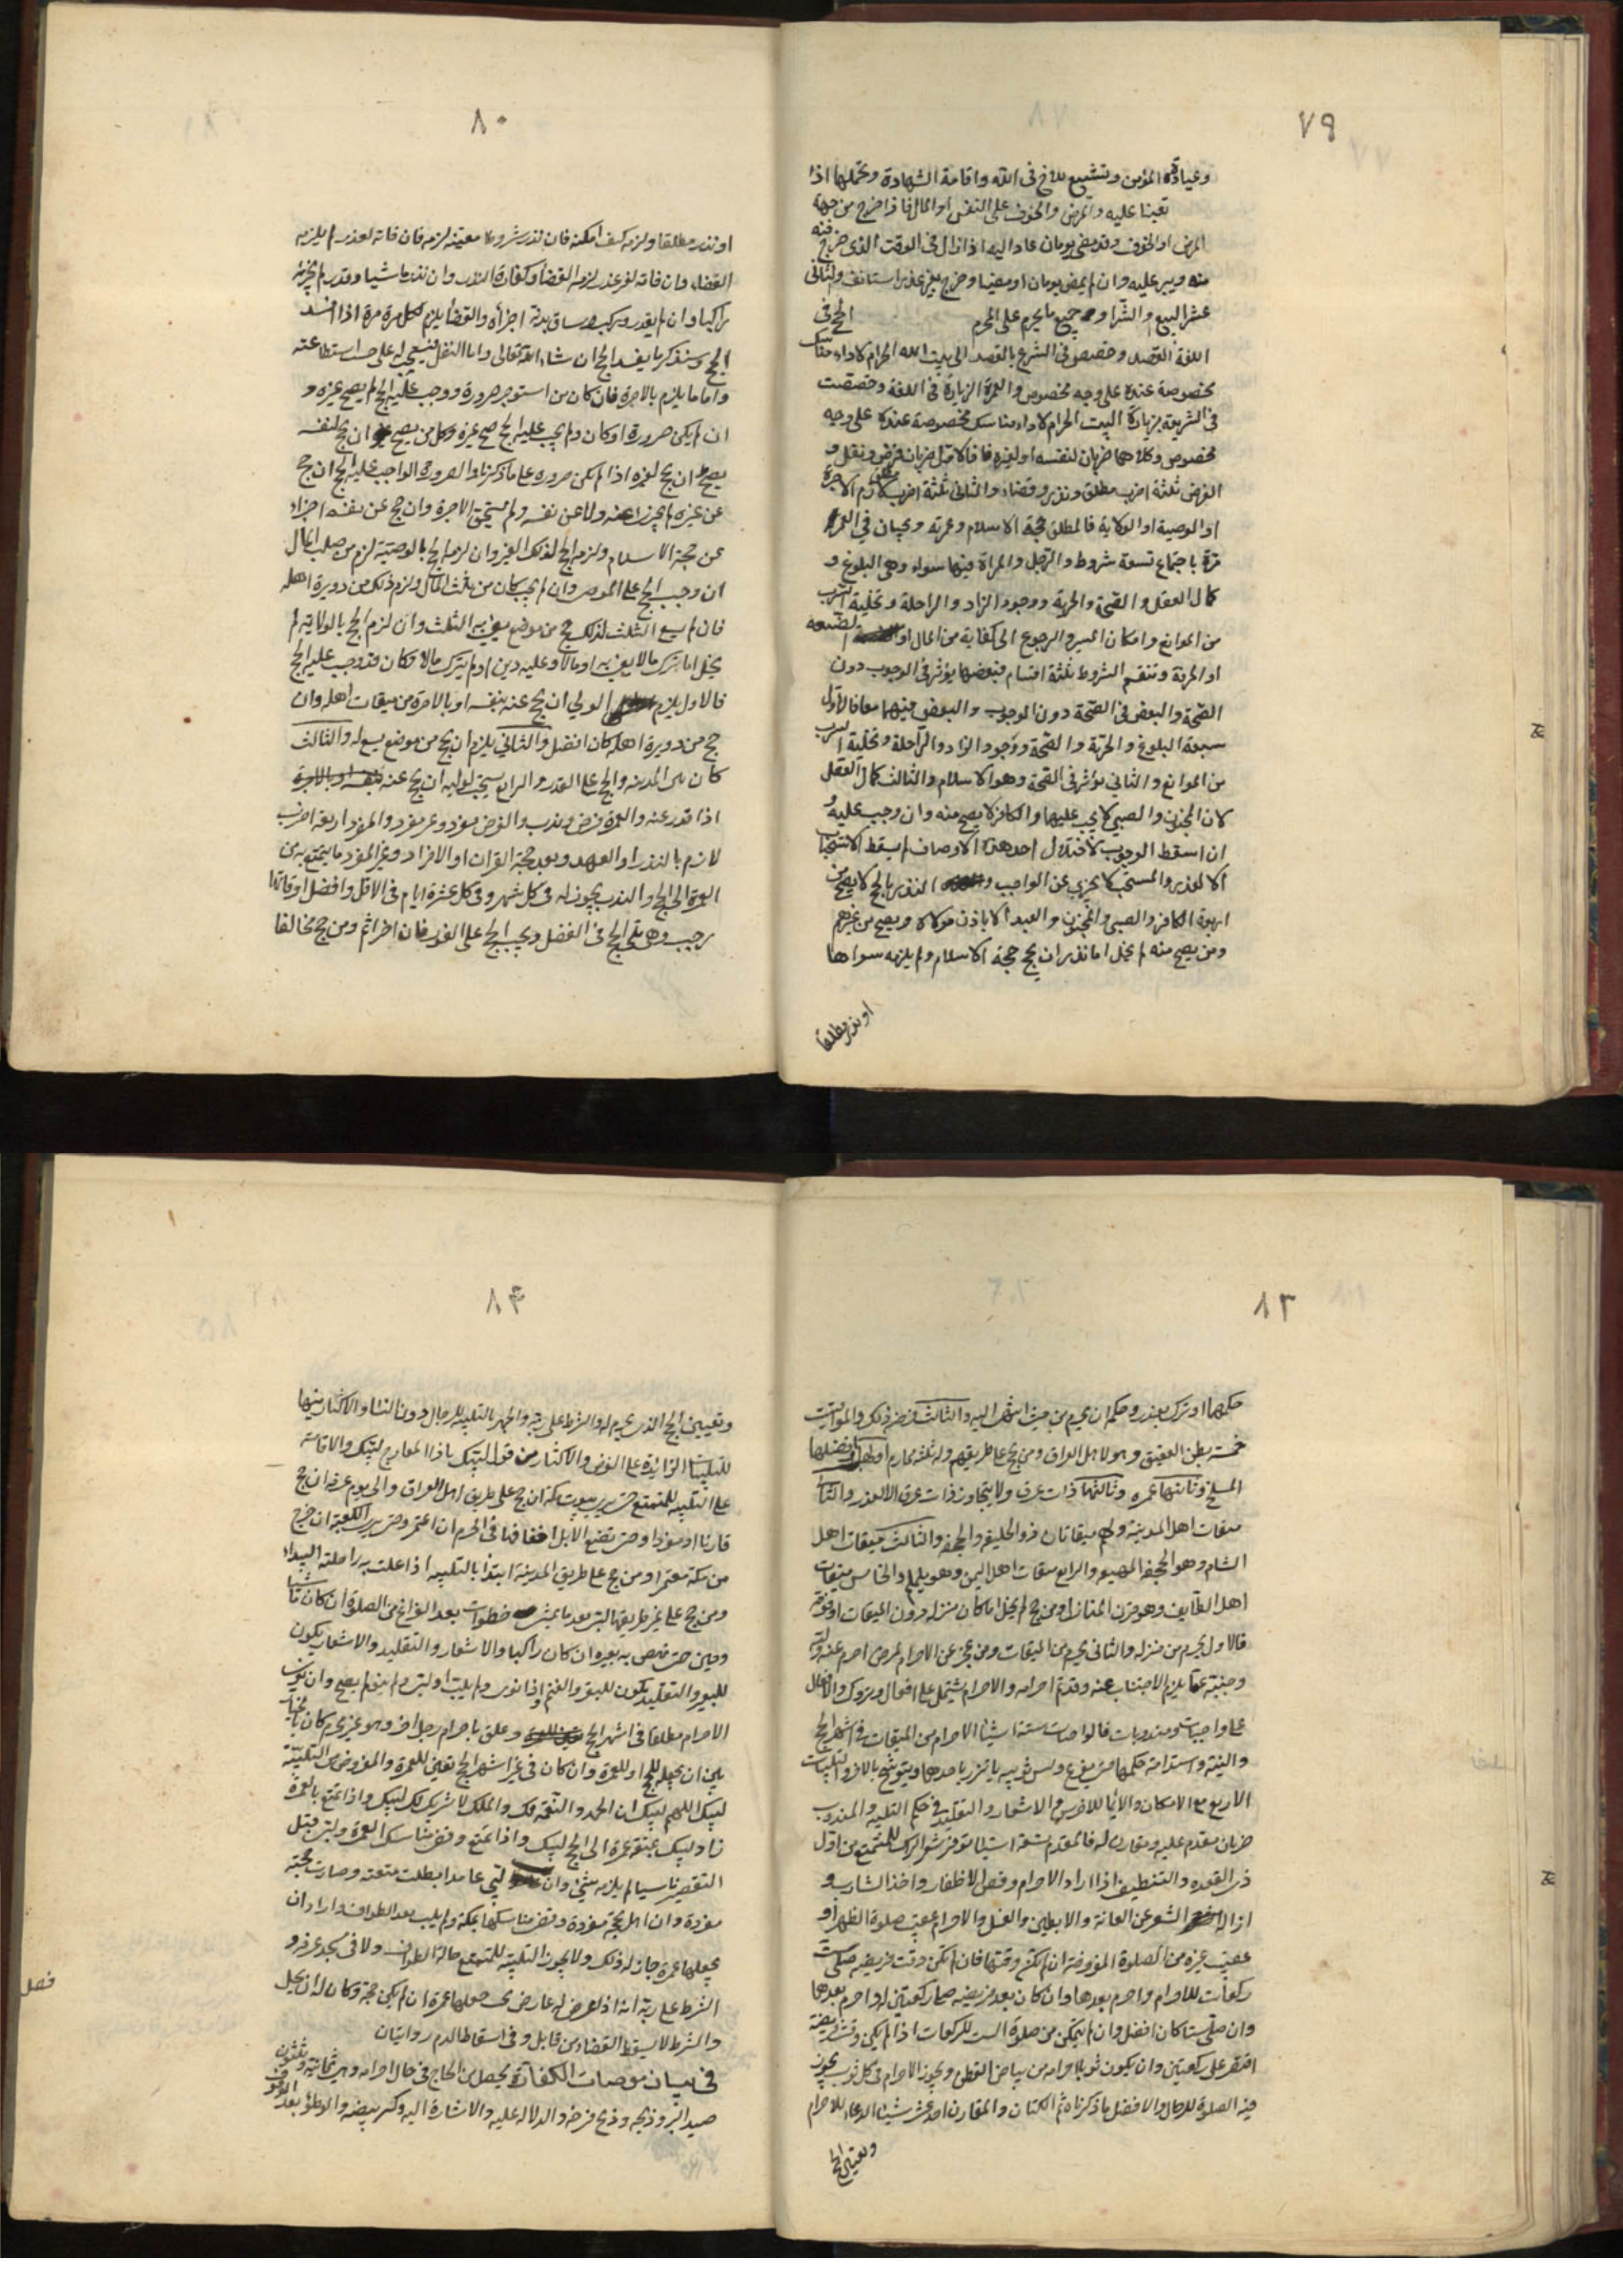 ٧٩
وعيادة المؤمن وتشييع للاخ فى الله واقامة الشهادة وتحملها اذا
تعينا عليه والمرض والخوف على النفس او المال فاذا خرج من جهة
المرض او الخوف وقد مضى يومان عاد اليه اذا زال فى الوقت الذى خرج فيه
منه ويبر عليه وان لم يمض يومان او مضيا وخرج بغير عذر استانف والثانى
عشر البيع والشراو جميع ما يحرم على المحرم الحج فى
اللغة القصد وخصص فى الشرع بالقصد الى بيت الله الحرام لاداء مناسك
مخصوصة عنده على وجه مخصوص والعمرة الزيارة فى اللغة وخصصت
فى الشريعة بزيارة البيت الحرام لاداء مناسك مخصوصة عنده على وجه
مخصوص وكلاهما ضربان لنفسه او لغيره فالاول ضربان فرض ونفل و
الفرض ثلثة اضرب مطلق ونذر وقضاء والثانى ثلثة اضرب لازم الاجرة
او الوصية او الولاية فالمطلق حجة الاسلام وعمرته ويجبان فى العمر
مرة باجتماع تسعة شروط والرجل والمراة فيهما سواء وهى البلوغ و
كمال العقل والصحة والحرية ووجود الزاد والراحلة وتخلية السرب
من الموانع وامكان المسير والرجوع الى كفاية من المال او الصنعه
او الحرفة وتنقسم الشروط ثلثة اقسام فبعضها يؤثر فى الوجوب دون
الصحة والبعض فى الصحة دون الوجوب والبعض فيهما معا فالاول
سبعة البلوغ والحرية والصحة ووجود الزاد والراحلة وتخلية السرب
من الموانع والثانى يؤثر فى الصحة وهو الاسلام والثالث كمال العقل
لان المجنون والصبي لا يجب عليهما والكافر لا يصح منه وان وجب عليه و
ان اسقط الوجوب لاختلال احد هذه الاوصاف لم يسقط الاستحباب
الا لعذر والمستحب لا يجزى عن الواجب و النذر بالحج لا يصح من
اربعة الكافر والصبى والمجنون والعبد الا باذن مولاه ويصح من غيرهم
ومن يصح منه لم يخل اما نذر ان يحج حجة الاسلام ولم يلزمه سواها
او نذر مطلقا
٨٠
او نذر مطلقا ولزمه كيف امكنه فان نذر مشروطا معينه لزمه فان فاته لعذر لم يلزمه
القضاء وان فاته لغير عذر لزمه القضاء وكفارة النذر وان نذر ماشيا وقدر لم يجزئه
راكبا وان لم يقدر وركب وساق بدنة اجزأه والقضاء يلزم لكل مرة مرة اذا افسد
الحج وسنذكر ما يفسد الحج ان شاء الله تعالى واما النفل فينبغى له على حسب استطاعته
واما ما يلزم بالاجرة فان كان من استوجر صرورة ووجب عليه الحج لم يصح غيره و
ان لم يكن صرورة او كان ولم يجب عليه الحج صح غيره وكل من يصح ان يحج لنفسه
يصح ان يحج لغيره اذا لم يكن صرورة على ما ذكرنا والصرورة الواجب عليه الحج ان حج
عن غيره لم يجز عنه ولا عن نفسه ولم يستحق الاجرة وان حج عن نفسه اجزاء
عن حجة الاسلام ولزمه الحج لذلك الغير وان لزم الحج بالوصية لزم من صلب المال
ان وجب الحج على الموصى وان لم يجب كان من ثلث المال ولزم ذلك من دويرة اهله
فان لم يسع الثلث لذلك حج من موضع يفى به الثلث وان لزم الحج بالولاية لم
يخل اما ترك مالا يفى به او مالا وعليه دين او لم يترك مالا وكان قد وجب عليه الحج
فالاول يلزم الولي ان يحج عنه بنفسه او بالاجرة من ميقات اهله وان
حج من دويرة اهله كان افضل والثاني يلزم ان يحج من موضع يسع له والثالث
كان بين المدينه والحج على القدر والرابع يستحب لوليه ان يحج عنه بنفسه او بالاجرة
اذا قدر عنه والعمرة فرض وندب والفرض مفرد وغير مفرد والمفرد اربعة اضرب
لازم بالنذر او العهد وبعد حجة القران او الافراد وغير المفرد ما يتمتع به من
العمرة الى الحج والندب يجوز له فى كل شهر وفى كل عشرة ايام فى الاقل وافضل اوقاتها
رجب وهى تلى الحج فى الفضل ويجب الحج على الفور فان اخر اثم ومن حج مخالفا
٨٣
حكمها او ترك بعذر وحكمه ان يحرم من حيث انتهى اليه والثالث فرضه ذلك والمواقيت
خمسة بطن العقيق وهو لاهل العراق ومن يحج على طريقهم وله ثلثة محارم اولها وافضلها
المسلخ وثانيها غمره وثالثها ذات عرق ولا يتجاوز ذات عرق الا لعذر والثانى
ميقات اهل المدينة ولهم ميقاتان ذو الحليفه والجحفه والثالث ميقات اهل
الشام وهو الجحفه المهيعه والرابع ميقات اهل اليمن وهو يلملم والخامس ميقات
اهل الطايف وهو قرن المنازل ومن حج لم يخل اما كان منزله دون الميقات او فوقه
فالاول يحرم من منزله والثانى يحرم من الميقات ومن عجز عن الاحرام لمرض احرم عنه وليه
وجنبه عما يلزم الاجتناب عنه وقد تم احرامه والاحرام يشتمل على افعال وتروك والافعال
على واجبات ومندوبات فالواجبات ستة اشياء الاحرام من الميقات فى اشهر الحج
والنية واستدامة حكمها حتى يفرغ ولبس ثوبيه ياتزر باحدهما ويتوشح بالاخر والتلبيات
الاربع مع الامكان والايماء للاخرس والاشعار والتقليد فى حكم التلبيه والمندوب
ضربان مقدم عليه ومقارن له فالمقدم تسعة اشياء توفير شعر الراس للمتمتع من اول
ذى القعده والتنظيف اذا اراد الاحرام وقص الاظفار واخذ الشارب و
ازالة الشعر عن العانة والابطين والغسل والاحرام عقيب صلوة الظهر او
عقيب غيره من الصلوة المفروضة ان لم يكن وقتها فان لم تكن وقت فريضه صلى ست
ركعات للاحرام واحرم بعدها وان كان بعد فريضه صلى ركعتين له واحرم بعدها
وان صلى ستا كان افضل وان لم يتمكن من صلوة الست للركعات اذا لم يكن وقت فريضة
اقتصر على ركعتين وان يكون ثوبا احرامه من بياض القطن ويجوز الاحرام فى كل ثوب يجوز
فيه الصلوة للرجال والافضل ما ذكرناه ثم الكتان والمقارن احد عشر شيئا الدعاء للاحرام
وتعيين الحج
٨۴
وتعيين الحج الذى يحرم له والشرط على ربه والجهر بالتلبيه للرجال دون النساء والاكثار منها
للتلبيات الزائدة على الفرض والاكثار من قول لبيك يا ذا المعارج لبيك والاقامة
على التلبيه للمتمتع حتى يرى بيوت مكة ان حج على طريق اهل العراق والى يوم عرفه ان حج
قارنا او مفردا وحتى تضع الابل اخفافها فى الحرم ان اعتمر وحتى يرى الكعبة ان خرج
من مكة معتمرا ومن حج على طريق المدينة ابتدأ بالتلبيه اذا علت به راحلته البيداء
ومن حج على غير طريقها لبى بعد ما يمشى خطوات بعد الفراغ من الصلوة ان كان ماشيا
وحين ينهض به بعيره ان كان راكبا والاشعار والتقليد والاشعار يكون
للبعير والتقليد يكون للبقر والغنم واذا نوى ولم يلب او لبى ولم ينو لم يصح وان نوى
الاحرام مطلقا فى اشهر الحج وعلق باحرام رجل اخر وهو غير محرم كان بالخيار
بين ان يجعله للحج او للعمرة وان كان فى غير اشهر الحج تعين للعمرة والمفروض من التلبية
لبيك اللهم لبيك ان الحمد والنعمة لك والملك لا شريك لك لبيك واذا تمتع بالعمرة
زاد لبيك بمتعة عمرة الى الحج لبيك واذا تمتع وقضى مناسك العمرة ولبى قبل
التقصير ناسيا لم يلزمه شئ وان لبى عامدا بطلت متعته وصارت حجة
مفردة وان اهل بحجة مفردة وقضى مناسكها بمكة ولم يلب بعد الطواف واراد ان
يجعلها عمرة جاز له ذلك ولا يجوز التلبية للمتمتع حالة الطواف ولا فى مسجد عرفه و
الشرط على ربه انه اذا عرض له عارض يجعلها عمرة ان لم يكن حجة وكان له ان يحل
والشرط لا يسقط القضاء من قابل وفى اسقاط الدم روايتان
فصل
فى بيان موجبات الكفارة يحصل من الحاج فى حال احرامه وهى ثمانية وثلثون
صيد البر وذبحه وذبح فرخه والدلالة عليه والاشارة اليه وكسر بيضه والوطؤ بعد الوقوف